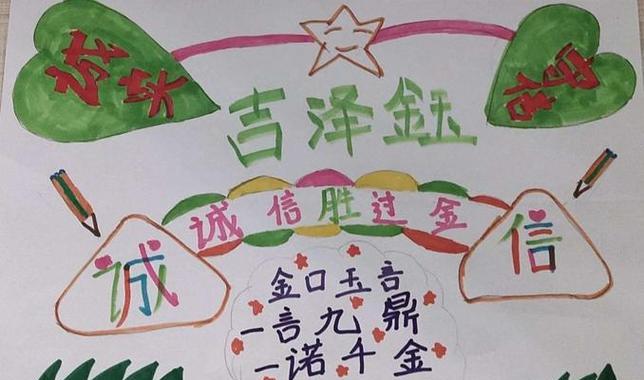 诚实
守信
吉泽鈺
诚信胜过金
诚
信
金口玉言
一言九鼎
一诺千金